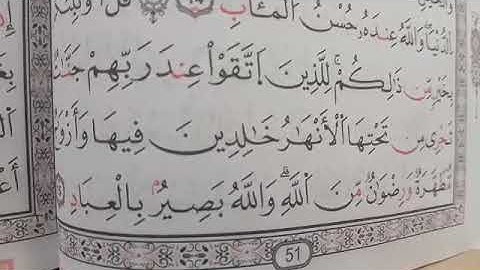 الدُّنْيَا وَاللَّهُ عِندَهُ حُسْنُ الْمَآبِ
بِخَيْرٍ مِّن ذَٰلِكُمْ ۚ لِلَّذِينَ اتَّقَوْا عِندَ رَبِّهِمْ جَنَّـٰتٌ
تَجْرِى مِن تَحْتِهَا الْأَنْهَـٰرُ خَـٰلِدِينَ فِيهَا وَأَزْوَٰجٌ
مُّطَهَّرَةٌ وَرِضْوَٰنٌ مِّنَ اللَّهِ ۗ وَاللَّهُ بَصِيرٌ بِالْعِبَادِ
51